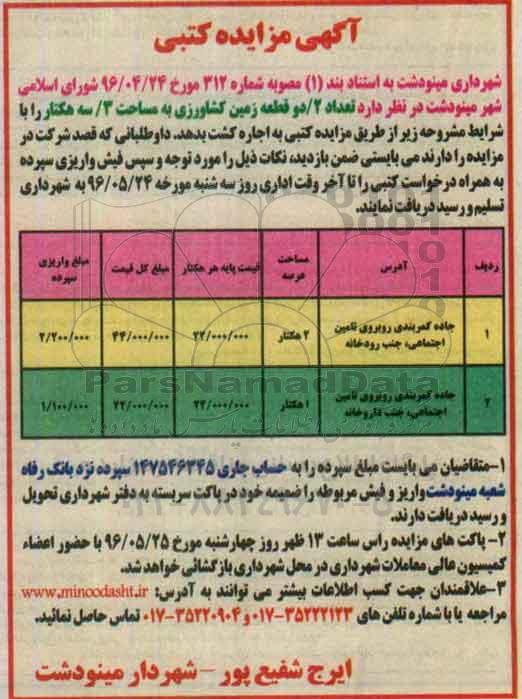 آگهی مزایده کتبی
شهرداری مینودشت به استناد بند (۱) مصوبه شماره ۳۱۲ مورخ ۹۶/۰۴/۲۴ شورای اسلامی
شهر مینودشت در نظر دارد تعداد ۲/دو قطعه زمین کشاورزی به مساحت ۳/ سه هکتار را با
شرایط مشروحه زیر از طریق مزایده کتبی به اجاره کشت بدهد. داوطلبانی که قصد شرکت در
مزایده را دارند می بایستی ضمن بازدید، نکات ذیل را مورد توجه و سپس فیش واریزی سپرده
به همراه درخواست کتبی را تا آخر وقت اداری روز سه شنبه مورخه ۹۶/۰۵/۲۴ به شهرداری
تسلیم و رسید دریافت نمایند.
ردیف آدرس مساحت عرصه قیمت پایه هر هکتار مبلغ کل قیمت مبلغ واریزی سپرده
۱ جاده کمربندی روبروی تامین اجتماعی، جنب رودخانه ۲ هکتار ۲۲/۰۰۰/۰۰۰ ۴۴/۰۰۰/۰۰۰ ۲/۲۰۰/۰۰۰
۲ جاده کمربندی روبروی تامین اجتماعی، جنب داروخانه ۱ هکتار ۲۲/۰۰۰/۰۰۰ ۲۲/۰۰۰/۰۰۰ ۱/۱۰۰/۰۰۰
ParsNamadData
۱-متقاضیان می بایست مبلغ سپرده را به حساب جاری ۱۴۷۵۴۶۳۴۵ سپرده نزد بانک رفاه
شعبه مینودشت واریز و فیش مربوطه را ضمیمه خود در پاکت سربسته به دفتر شهرداری تحویل
و رسید دریافت دارند.
۲- پاکت های مزایده راس ساعت ۱۳ ظهر روز چهارشنبه مورخ ۹۶/۰۵/۲۵ با حضور اعضاء
کمیسیون عالی معاملات شهرداری در محل شهرداری بازگشائی خواهد شد.
۳-علاقمندان جهت کسب اطلاعات بیشتر می توانند به آدرس: www.minoodasht.ir
مراجعه یا با شماره تلفن های ۳۵۲۲۲۱۲۳-۰۱۷ و ۳۵۲۲۰۹۰۴-۰۱۷ تماس حاصل نمائید.
ایرج شفیع پور - شهردار مینودشت